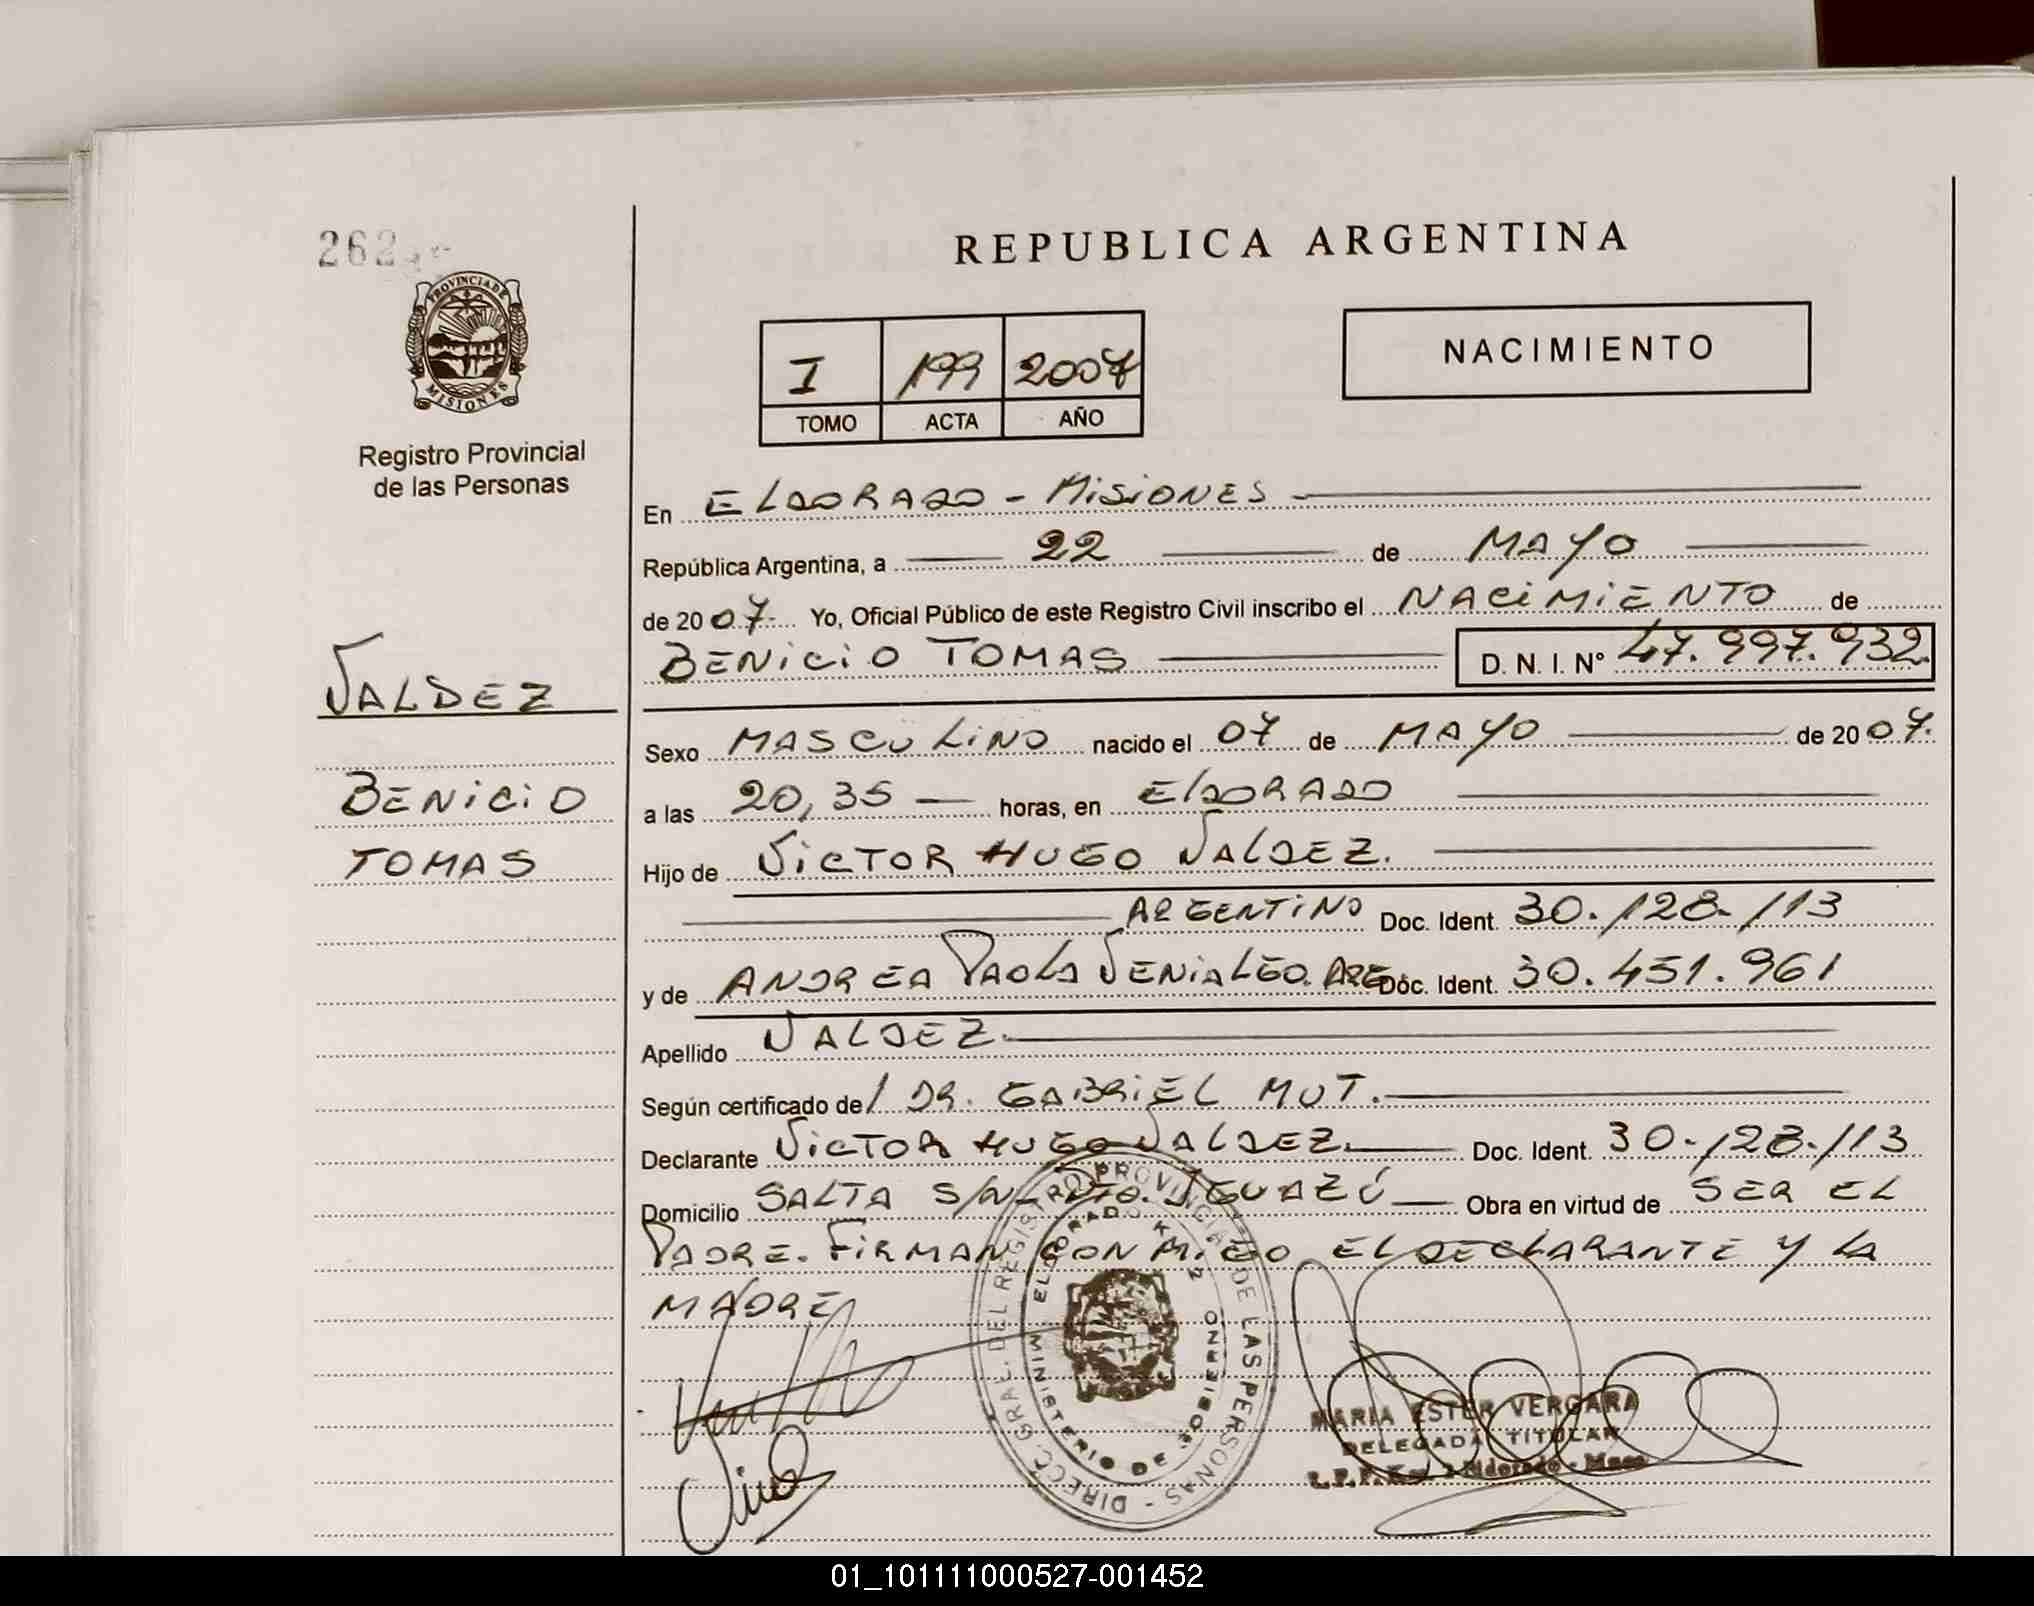 262
PROVINCIA DE
MISIONES
Registro Provincial
de las Personas
VALDEZ
BENICIO
TOMAS
REPUBLICA ARGENTINA
I 199 2007
TOMO ACTA AÑO
NACIMIENTO
En ELDORADO - MISIONES
República Argentina, a 22 de MAYO
de 2007. Yo, Oficial Público de este Registro Civil inscribo el NACIMIENTO de
BENICIO TOMAS D. N. I. N° 47.997.932
Sexo MASCULINO nacido el 07 de MAYO de 2007.
a las 20,35 horas, en ELDORADO
Hijo de VICTOR HUGO VALDEZ.
ARGENTINO Doc. Ident. 30.128.113
y de ANDREA PAOLA VENIALGO. ARG Doc. Ident. 30.451.961
Apellido VALDEZ
Según certificado del DR. GABRIEL MUT.
Declarante VICTOR HUGO VALDEZ. Doc. Ident. 30.128.113
Domicilio SALTA S/N- PTO. IGUAZÚ Obra en virtud de SER EL
PADRE. FIRMAN CON MIGO EL DECLARANTE Y LA
MADRE
DIRECC. GRAL. DEL REGISTRO PROVINCIAL DE LAS PERSONAS -
MINISTERIO DE GOBIERNO
ELDORADO K 2
MARIA ESTER VERGARA
DELEGADA TITULAR
01_101111000527-001452